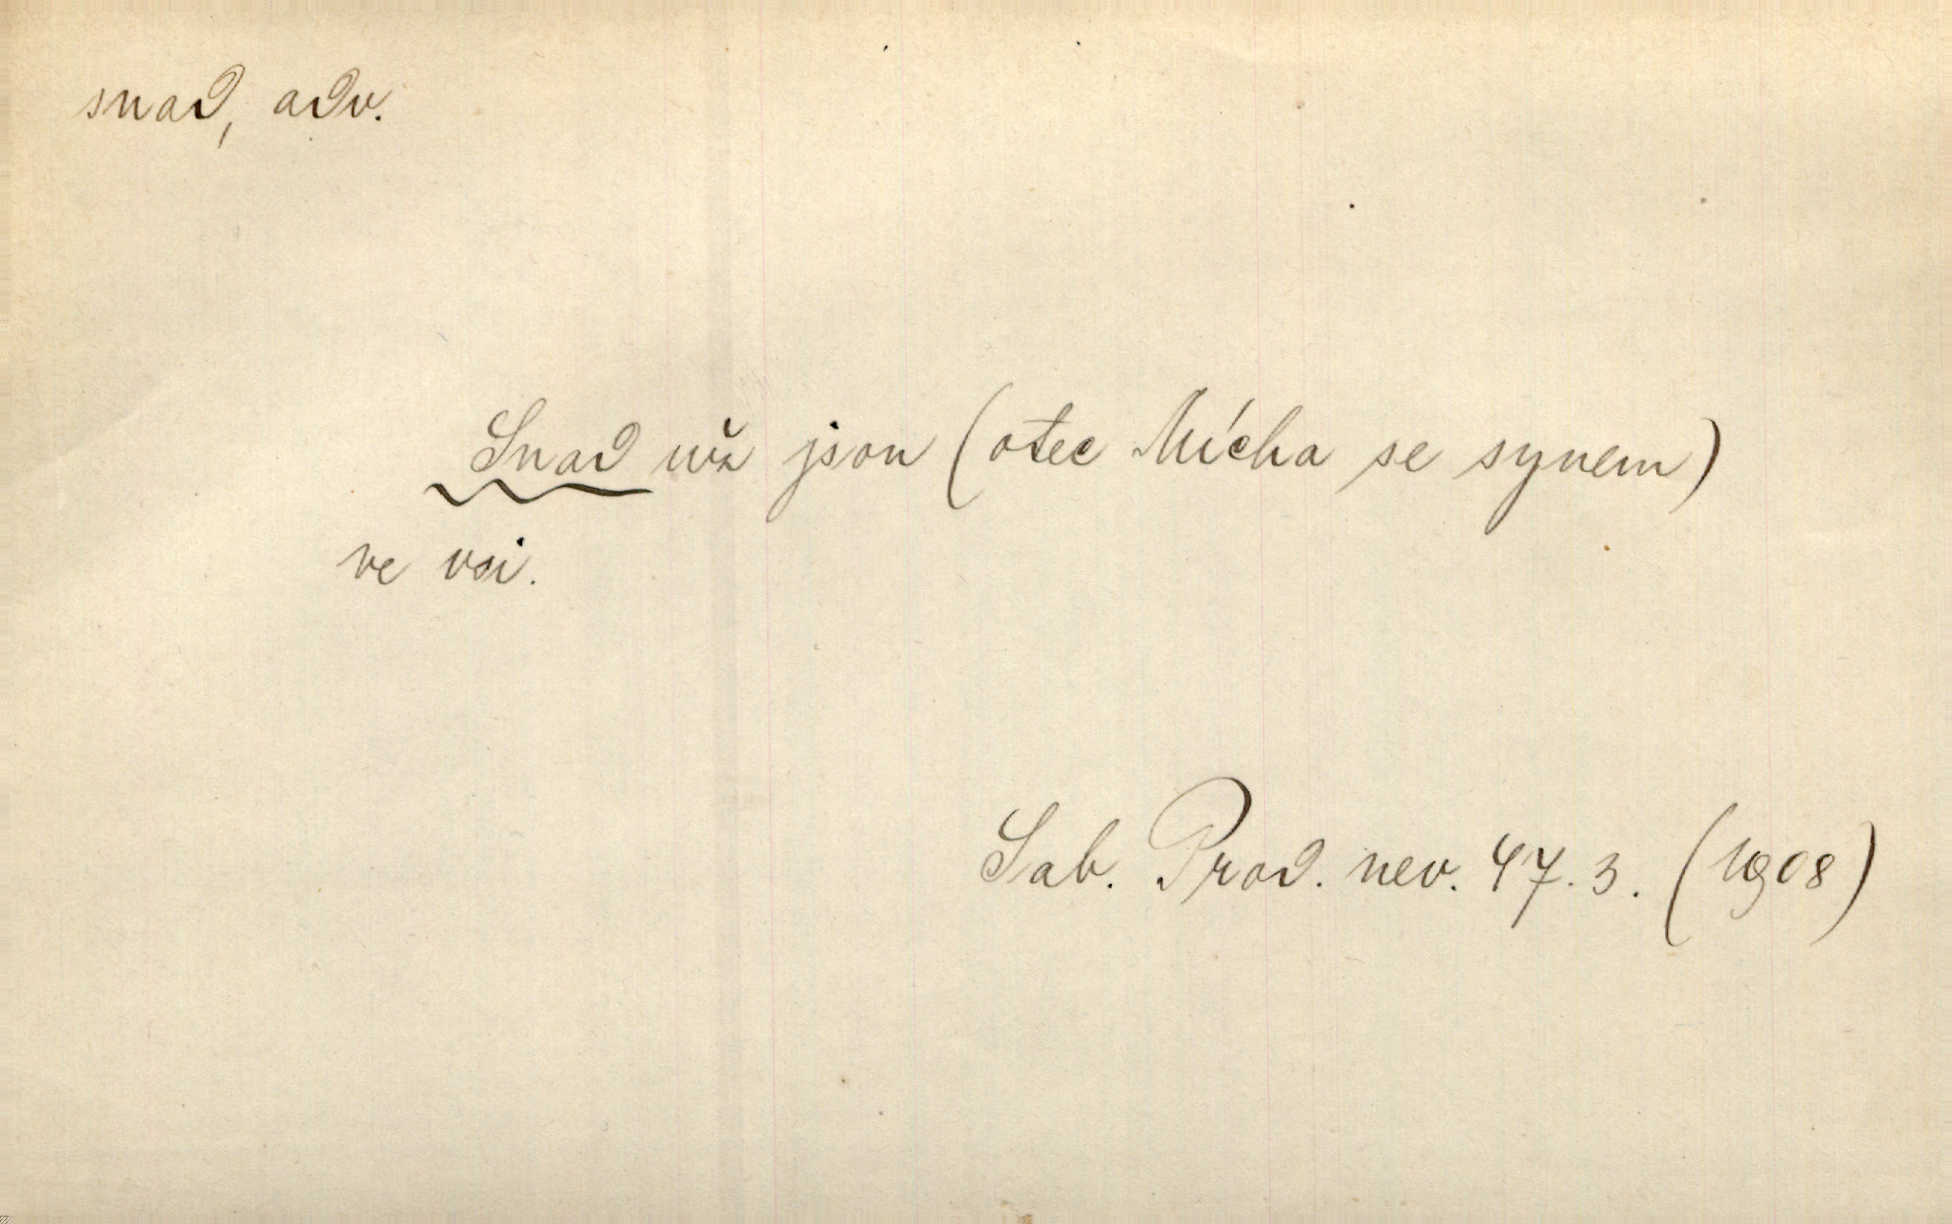 snad, adv.
Snad už jsou (otec Mícha se synem)
ve vsi.
Sab. Prod. nev. 47.3. (1908)